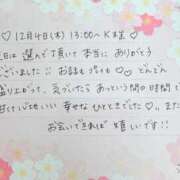 ♡12月4日(木) 13:00〜 K様♡
日は選んで頂いて本当に ありがとう
ございました!! お話も ♡ どんどん
盛り上がって、気づいたら あっという間の時間で
甘くて心地いい 幸せなひとときでした♡
お会いできれば 嬉しいです!!